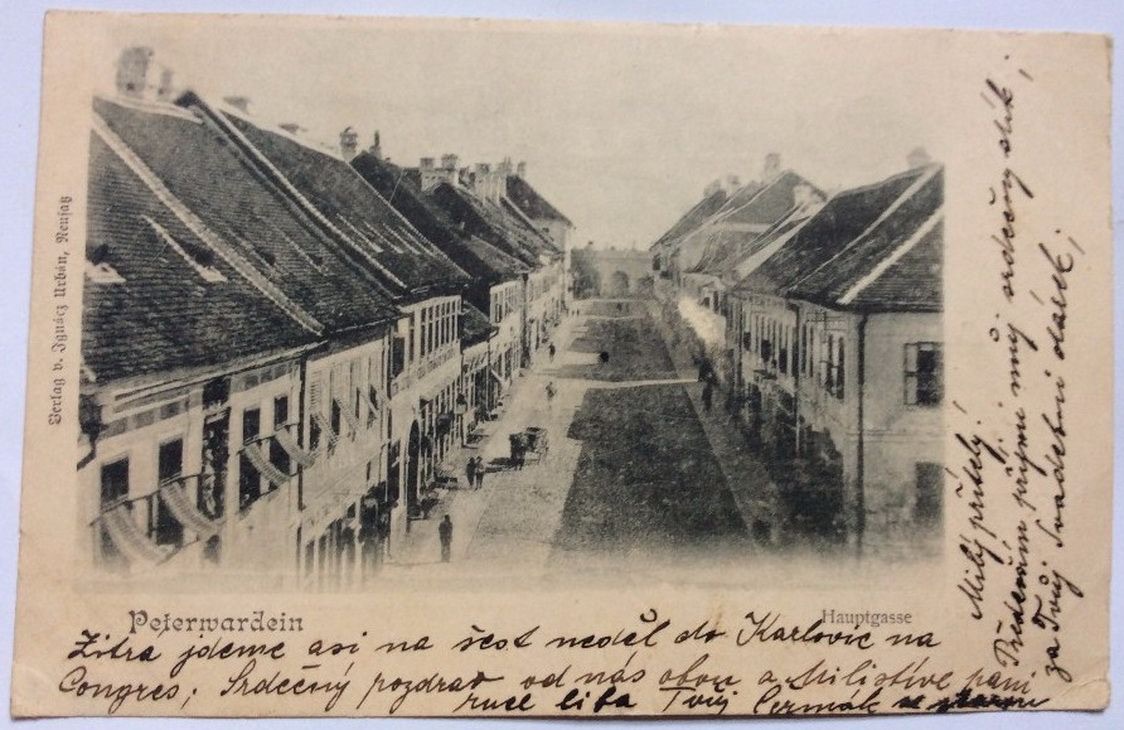 Verlag v. Ignácz Urbán, Neusatz
Peterwardein
Hauptgasse
Milý příteli!
Především přijmi můj srdečný dík;
za Tvůj Svadební dárek;
Zitra jdeme asi na šest neděl do Karlovic na
Congres; Srdečný pozdrav od nás obou a Milistive paní
ruce líba Tvůj Cermák